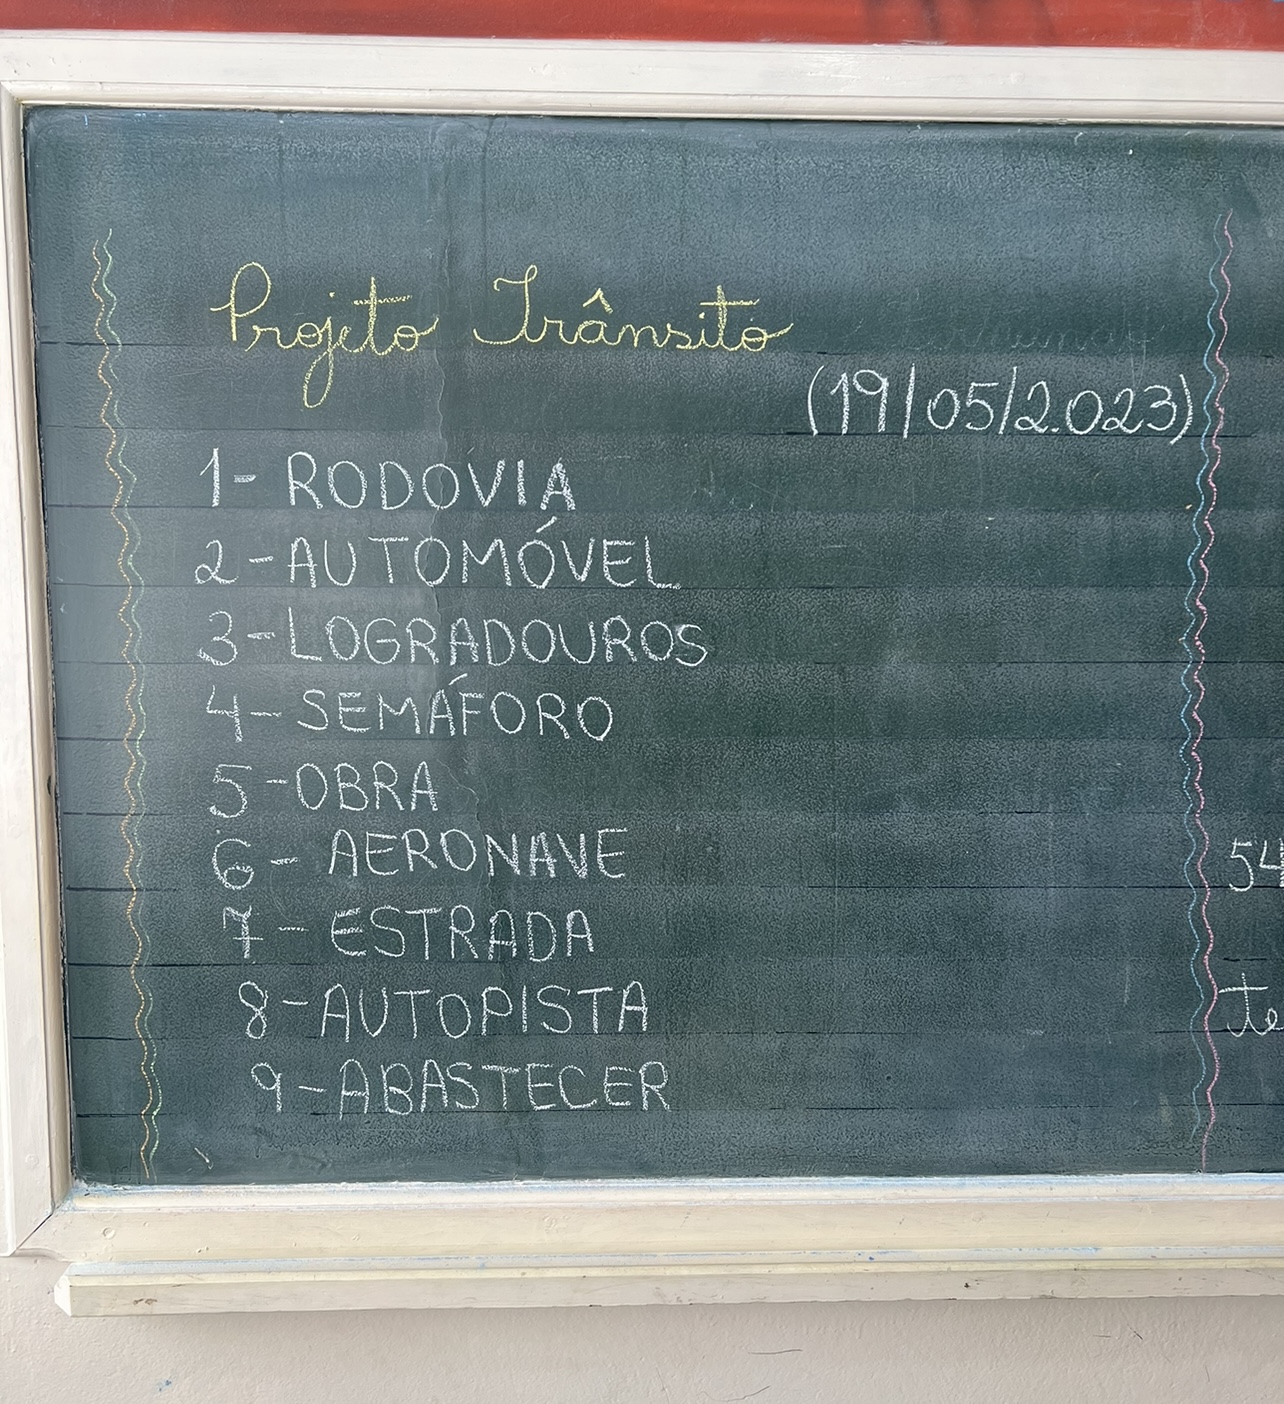 Projeto Trânsito
(19/05/2.023)
1- RODOVIA
2-AUTOMÓVEL
3-LOGRADOUROS
4-SEMÁFORO
5-OBRA
6- AERONAVE
7- ESTRADA
8-AUTOPISTA
9-ABASTECER
54
te